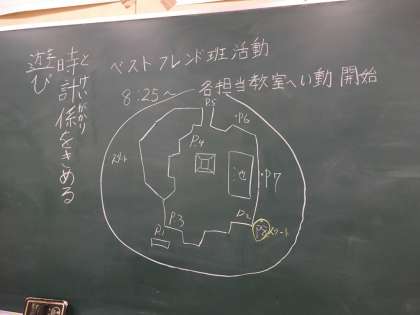 遊び時計係をきめる
とけいがかり
ベストフレンド班活動
8:25～ 各担当教室へい動 開始
P5
P6
P4
池
P7
P3
P2
P1